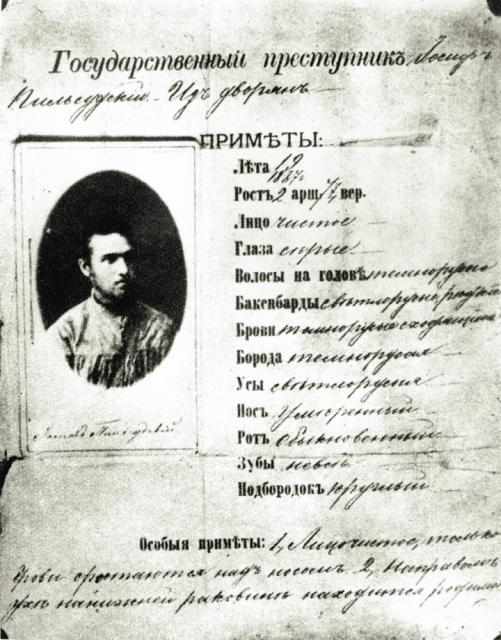 Государственный преступникъ Iосифъ
Пилсудскiй Изъ дворянъ
ПРИМѢТЫ:
Лѣта 19
1887г.
Ростъ 2 арш 7½ вер.
Лицо чистое
Глаза сѣрые
Волосы на головѣ темнорусые
Бакенбарды свѣтлорусые
Брови темнорусые
Борода темнорусая
Усы свѣтлорусыя
Носъ умѣренный
Ротъ обыкновенный
Зубы не всѣ
Подбородокъ круглый
Особыя примѣты: 1, Лицо чистое, только
брови сростаются надъ носомъ 2, На правомъ
ухѣ на нижней раковинѣ находится